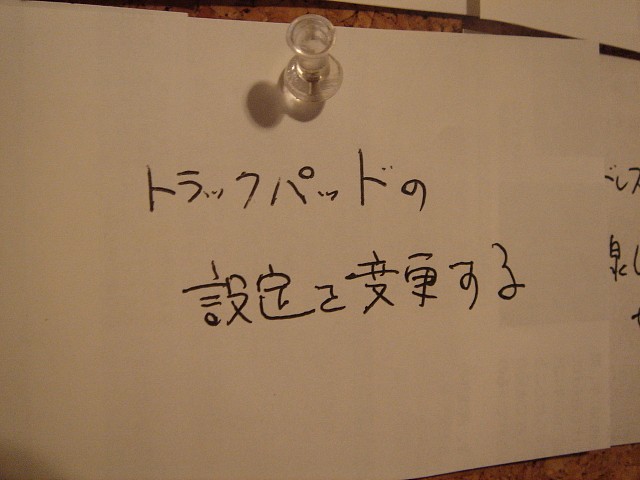 トラックパッドの
設定を変更する